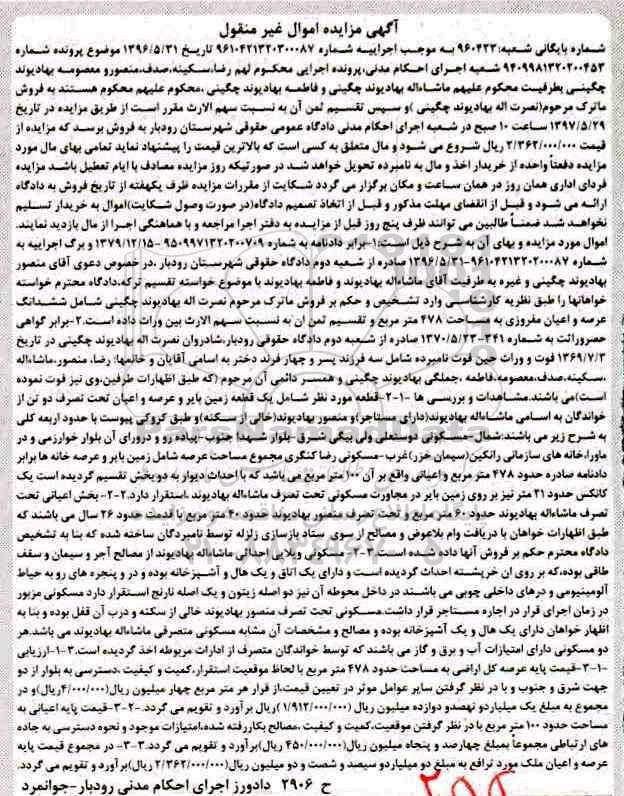 آگهی مزایده اموال غیر منقول
شماره بایگانی شعبه:۹۶۰۴۲۳ به موجب اجراییه شماره ۹۶۱۰۴۲۱۳۲۰۳۰۰۰۸۷ تاریخ ۱۳۹۶/۵/۳۱ موضوع پرونده شماره
۹۴۰۹۹۸۱۳۲۰۲۰۰۴۵۳ شعبه اجرای احکام مدنی،پرونده اجرایی محکوم لهم رضا،سکینه،صدف،منصورو معصومه بهادیوند
چگینی بطرفیت محکوم علیهم ماشاءاله بهادیوند چگینی و فاطمه بهادیوند چگینی ،محکوم علیهم محکوم هستند به فروش
ماترک مرحوم(نصرت اله بهادیوند چگینی )و سپس تقسیم ثمن آن به نسبت سهم الارث مقرر است از طریق مزایده در تاریخ
۱۳۹۷/۵/۲۹ ساعت ۱۰ صبح در شعبه اجرای احکام مدنی دادگاه عمومی حقوقی شهرستان رودبار به فروش برسد که مزایده از
قیمت ۲/۳۶۲/۰۰۰/۰۰۰ ریال شروع می شود و مال متعلق به کسی است که بالاترین قیمت را پیشنهاد نماید تمامی بهای مال مورد
مزایده دفعتاً واحده از خریدار اخذ و مال به نامبرده تحویل خواهد شد در صورتیکه روز مزایده مصادف با ایام تعطیل باشد مزایده
فردای اداری همان روز در همان ساعت و مکان برگزار می گردد شکایت از مقررات مزایده ظرف یکهفته از تاریخ فروش به دادگاه
ارائه می شود و قبل از انقضای مهلت مذکور و قبل از اتخاذ تصمیم دادگاه(در صورت وصول شکایت)اموال به خریدار تسلیم
نخواهد شد ضمناً طالبین می توانند ظرف پنج روز قبل از مزایده به دفتر اجرا مراجعه و با هماهنگی اجرا از مال بازدید نمایند.
اموال مورد مزایده و بهای آن به شرح ذیل است:۱-برابر دادنامه به شماره ۹۵۰۹۹۷۱۳۲۰۲۰۰۷۰۹-۱۳۷۹/۱۲/۱۵ و برگ اجراییه به
شماره ۹۶۱۰۴۲۱۳۲۰۲۰۰۰۸۷-۱۳۹۶/۵/۳۱ صادره از شعبه دوم دادگاه حقوقی شهرستان رودبار ،در خصوص دعوی آقای منصور
بهادیوند چگینی و غیره به طرفیت آقای ماشاءاله بهادیوند و فاطمه بهادیوند با موضوع خواسته تقسیم ترکه،دادگاه محترم خواسته
خواهانها را طبق نظریه کارشناسی وارد تشخیص و حکم بر فروش ماترک مرحوم نصرت اله بهادیوند چگینی شامل ششدانگ
عرصه و اعیان مفروزی به مساحت ۴۷۸ متر مربع و تقسیم ثمن ان به نسبت سهم الارث بین وراث داده است.۲-برابر گواهی
حصروراثت به شماره ۳۴۱-۱۳۷۰/۵/۲۳ صادره از شعبه دوم دادگاه حقوقی رودبار،شادروان نصرت اله بهادیوند چگینی در تاریخ
۱۳۶۹/۷/۳ فوت و وراث حین فوت نامبرده شامل سه فرزند پسر و چهار فرند دختر به اسامی آقایان و خانمها: رضا، منصور،ماشاءاله
،سکینه،صدف،معصومه،فاطمه ،جملگی بهادیوند چگینی و همسر دائمی آن مرحوم (که طبق اظهارات طرفین،وی نیز فوت نموده
است)می باشند.مشاهدات و بررسی ها -۱-۲-قطعه مورد نظر شامل یک قطعه زمین بایر و عرصه و اعیان تحت تصرف دو تن از
خواندگان به اسامی ماشاءاله بهادیوند(دارای مستاجر)و منصور بهادیوند(خالی از سکنه)و طبق کروکی پیوست با حدود اربعه کلی
به شرح زیر می باشند:شمال-مسکونی دوستعلی ولی بیگی شرق-بلوار شهدا جنوب-پیاده رو و درورای آن بلوار خوارزمی و در
ماورا،خانه های سازمانی رانکین(سیمان خزر)غرب-مسکونی رضا کنگری مجموع مساحت عرصه شامل زمین بایر و عرصه خانه ها برابر
دادنامه صادره حدود ۴۷۸ متر مربع و اعیانی واقع بر آن ۱۰۰ متر مربع می باشد که با احداث دیوار به دوبخش تقسیم گردیده است یک
کانکس حدود ۲۱ متر نیز بر روی زمین بایر در مجاورت مسکونی تحت تصرف ماشاءاله بهادیوند ،استقرار دارد.۲-۲- بخش اعیانی تحت
تصرف ماشاءاله بهادیوند حدود ۶۰ متر مربع و تحت تصرف منصور بهادیوند حدود ۴۰ متر مربع با قدمت حدود ۲۶ سال می باشند که
طبق اظهارات خواهان با دریافت وام بلاعوض و مصالح از سوی ستاد بازسازی زلزله توسط نامبردگان ساخته شده که بنا به تشخیص
دادگاه محترم حکم بر فروش آنها داده شده است.۳-۲- مسکونی ویلایی احداثی ماشاءاله بهادیوند از مصالح آجر و سیمان و سقف
طاقی بوده،که بر روی ان خرپشته احداث گردیده است و دارای یک اتاق و یک هال و آشپزخانه بوده و در و پنجره های رو به حیاط
آلومینیومی و درهای داخلی چوبی می باشند در داخل محوطه آن نیز دو اصله زیتون و یک اصله نارنج استقرار دارد مسکونی مزبور
در زمان اجرای قرار در اجاره مستاجر قرار داشت.مسکونی تحت تصرف منصور بهادیوند خالی از سکنه و درب آن قفل بوده و بنا به
اظهار خواهان دارای یک هال و یک آشپزخانه بوده و مصالح و مشخصات آن مشابه مسکونی متصرفی ماشاءاله بهادیوند می باشد.هر
دو مسکونی دارای امتیازات آب و برق و گاز می باشند که توسط خواندگان متصرف از ادارات مربوطه اخذ گردیده است.۳-۱-ارزیابی
-۱-۳-قیمت پایه عرصه کل اراضی به مساحت حدود ۴۷۸ متر مربع با لحاظ موقعیت استقرار،کمیت و کیفیت ،دسترسی به بلوار از دو
جهت شرق و جنوب و با در نظر گرفتن سایر عوامل موثر در تعیین قیمت،از قرار هر متر مربع چهار میلیون ریال(۴/۰۰۰/۰۰۰ریال)و در
مجموع به مبلغ یک میلیاردو نهصدو دوازده میلیون ریال (۱/۹۱۲/۰۰۰/۰۰۰)ریال برآورد و تقویم می گردد.۲-۳-قیمت پایه اعیانی به
مساحت حدود ۱۰۰ متر مربع با در نظر گرفتن موقعیت،کمیت و کیفیت،مصالح بکاررفته شده،امتیازات موجود و نحوه دسترسی به جاده
های ارتباطی مجموعاً بمبلغ چهارصد و پنجاه میلیون ریال(۴۵۰/۰۰۰/۰۰۰ ریال)برآورد و تقویم گردد.۳-۳- در مجموع قیمت پایه
عرصه و اعیان ملک مورد ترافع به مبلغ دو میلیاردو سیصد و شصت و دو میلیون ریال(۲/۳۶۲/۰۰۰/۰۰۰ ریال)برآورد و تقویم می گردد.
ح ۲۹۰۶ دادورز اجرای احکام مدنی رودبار-جوانمرد